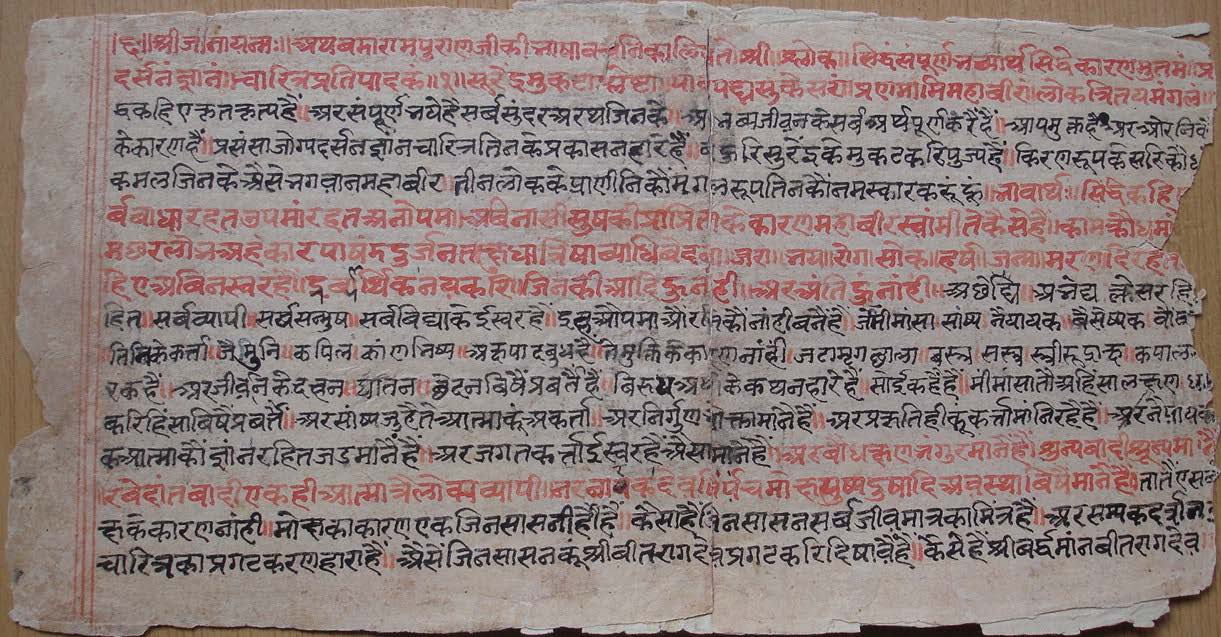 ॥६०॥ श्री जीनाय नमः॥ अथ पदमराम पुराण जी की भाषा वचनिका लि तो श्री श्लोक॥ सिद्धं संपूर्णभव्यार्थ सिद्धे कारणमुत्तमं॥ प्र
दर्सनं ज्ञानं॥ चारित्र प्रतिपादकं॥१॥ सुरेंद्रमुकटा पद्मांसुकेसरं॥ प्रणमामि महाबीरं॥ लोकत्रितयमंगलं॥
हिए कृतकृत्य हैं॥ अर संपूर्ण भये है सर्ब सुंदर अरथ जिनकै॥ भब्य जीवन के सर्ब अर्थ पूर्ण करै हैं॥ आप मुक्त है॥ अर ओरनिकै
के कारण हैं॥ प्रसंसा जोग्य दर्सन ज्ञान चारित्र तिन के प्रकासनहारे हैं॥ रि सुरेंद्र के मुकट करि पुज्य हैं॥ किरण रूप केसरि कौ ध
कमल जिन के॥ ऐसे भगवान महाबीर॥ तीन लोक के प्राणीनि कौं मंगल रूप तिन कौं नमस्कार करूं हूं॥ भावार्थः॥ सिद्ध कहि
र्ब बाधा रहत उपमां रहत अनोपम॥ अविनासी सुष की प्राप्ति ता के कारण महाबीर स्वांमी ते कैसे हैं॥ काम क्रोध मां
मछर लोभ अहंकार पाषंड दुर्जनता क्षुधा त्रिषा ब्याधि बेदना जरा॥ भय॥ रोग॥ सोक॥ हर्ष॥ जन्म॥ मरण॥ दि रहत
हिए अबिनस्वर हैं॥ द्रव्यार्थिक नय करि॥ जिनकी आदि हू नही॥ अर अंति हू नांही॥ अछेद्य॥ अभेद्य क्लेस रहि
हित॥ सर्बव्यापी॥ सर्वसन्मुष॥ सर्बबिद्या के ईस्वर हैं॥ इह औपमा और नि कौं नांही बनै है॥ जे मीमांसा सांष्य नैयायक॥ वैसेष्यक बौ
तिनि के कर्ता॥ जैमुनि॥ कपिल कांणभिष्य॥ अक्षपाद बुध हैं॥ ते मुक्ति के कारण नांही॥ जटा मृगछाला॥ बस्त्र सस्त्र स्त्री रुद्राक्ष॥ कपाल
रक हैं॥ अर जीवन के दहन॥ घातन॥ छेदन बिषै प्रबर्तै हैं॥ बिरुध अर्थ के कथनहारे हैं॥ मीमांसा तौ अहिंसा लक्षण धर्म
करि हिंसा बिषे प्रबर्तै॥ अर सांष्य जु है ते आत्मा कूं अकर्ता॥ अर निर्गुण भोक्ता मांनै है॥ अर प्रकृति ही कूं कर्त्ता मांनि रहै है॥ अर नैयायक
क आत्मा कौं ज्ञांन रहित जड मांनै है॥ अर जगत कर्त्ता ईस्वर है॥ ऐसा मांनै हैं॥ अर बौध क्षणभंगुर मांनै हैं॥ शून्यबादी शून्य मांनै
र बेदांतबादी एक ही आत्मा त्रैलोक्य व्यापी॥ नर नारक देव तिर्यंच मोक्ष सुष दुषादि अवस्था बिषै मांनै हैं॥ तातैं ए सब
क्ष के कारण नांही॥ मोक्ष का कारण एक जिनसासन ही है॥ कैसा है जिनसासन सर्ब जीव मात्र का मित्र है॥ अर सम्यक दर्शन
चारित्र का प्रगट करणहारा है॥ ऐसे जिनसासन कूं श्री बीतराग देव प्रगट करि दिषावै हैं॥ कैसे है श्री बर्द्धमांन बीतराग देव